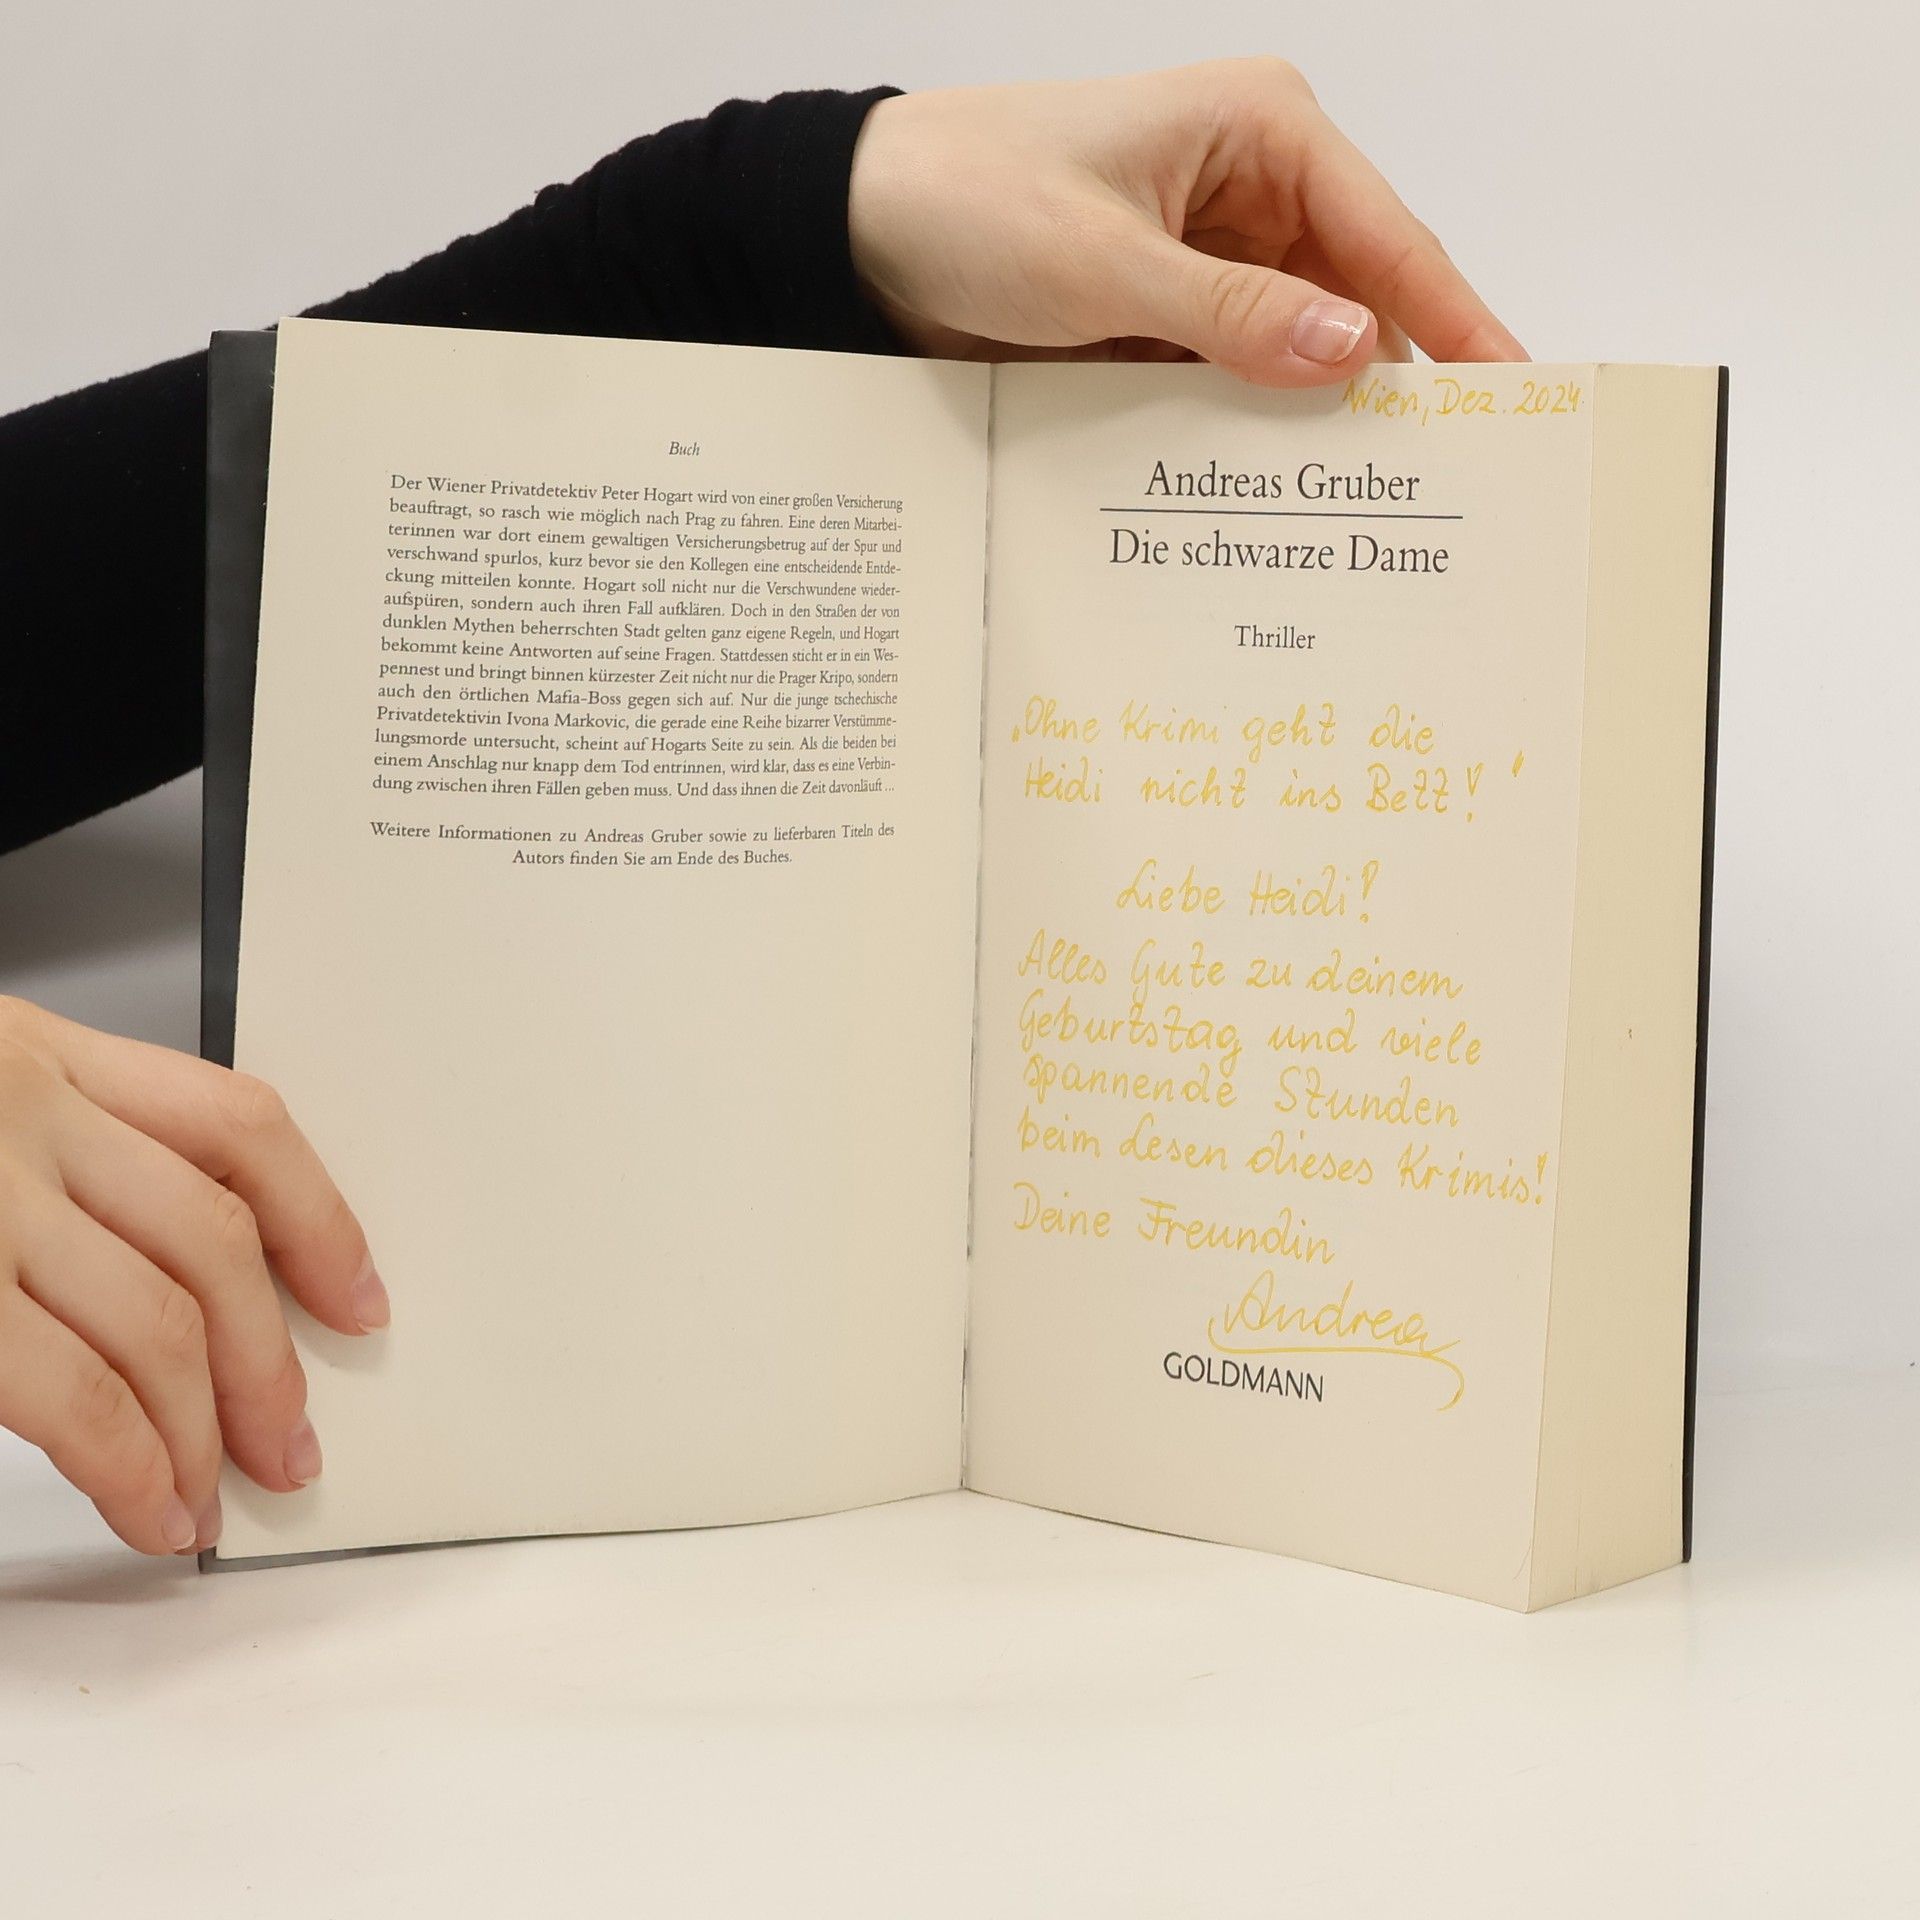 Buch
Der Wiener Privatdetektiv Peter Hogart wird von einer großen Versicherung
beauftragt, so rasch wie möglich nach Prag zu fahren. Eine deren Mitarbei-
terinnen war dort einem gewaltigen Versicherungsbetrug auf der Spur und
verschwand spurlos, kurz bevor sie den Kollegen eine entscheidende Entde-
ckung mitteilen konnte. Hogart soll nicht nur die Verschwundene wieder-
aufspüren, sondern auch ihren Fall aufklären. Doch in den Straßen der von
dunklen Mythen beherrschten Stadt gelten ganz eigene Regeln, und Hogart
bekommt keine Antworten auf seine Fragen. Stattdessen sticht er in ein Wes-
pennest und bringt binnen kürzester Zeit nicht nur die Prager Kripo, sondern
auch den örtlichen Mafia-Boss gegen sich auf. Nur die junge tschechische
Privatdetektivin Ivona Markovic, die gerade eine Reihe bizarrer Verstümme-
lungsmorde untersucht, scheint auf Hogarts Seite zu sein. Als die beiden bei
einem Anschlag nur knapp dem Tod entrinnen, wird klar, dass es eine Verbin-
dung zwischen ihren Fällen geben muss. Und dass ihnen die Zeit davonläuft ...
Weitere Informationen zu Andreas Gruber sowie zu lieferbaren Titeln des
Autors finden Sie am Ende des Buches.
Wien, Dez. 2024
Andreas Gruber
Die schwarze Dame
Thriller
„Ohne Krimi geht die
Heidi nicht ins Bett!"
Liebe Heidi!
Alles Gute zu deinem
Geburtstag und viele
spannende Stunden
beim Lesen dieses Krimis!
Deine Freundin
Andrea
GOLDMANN